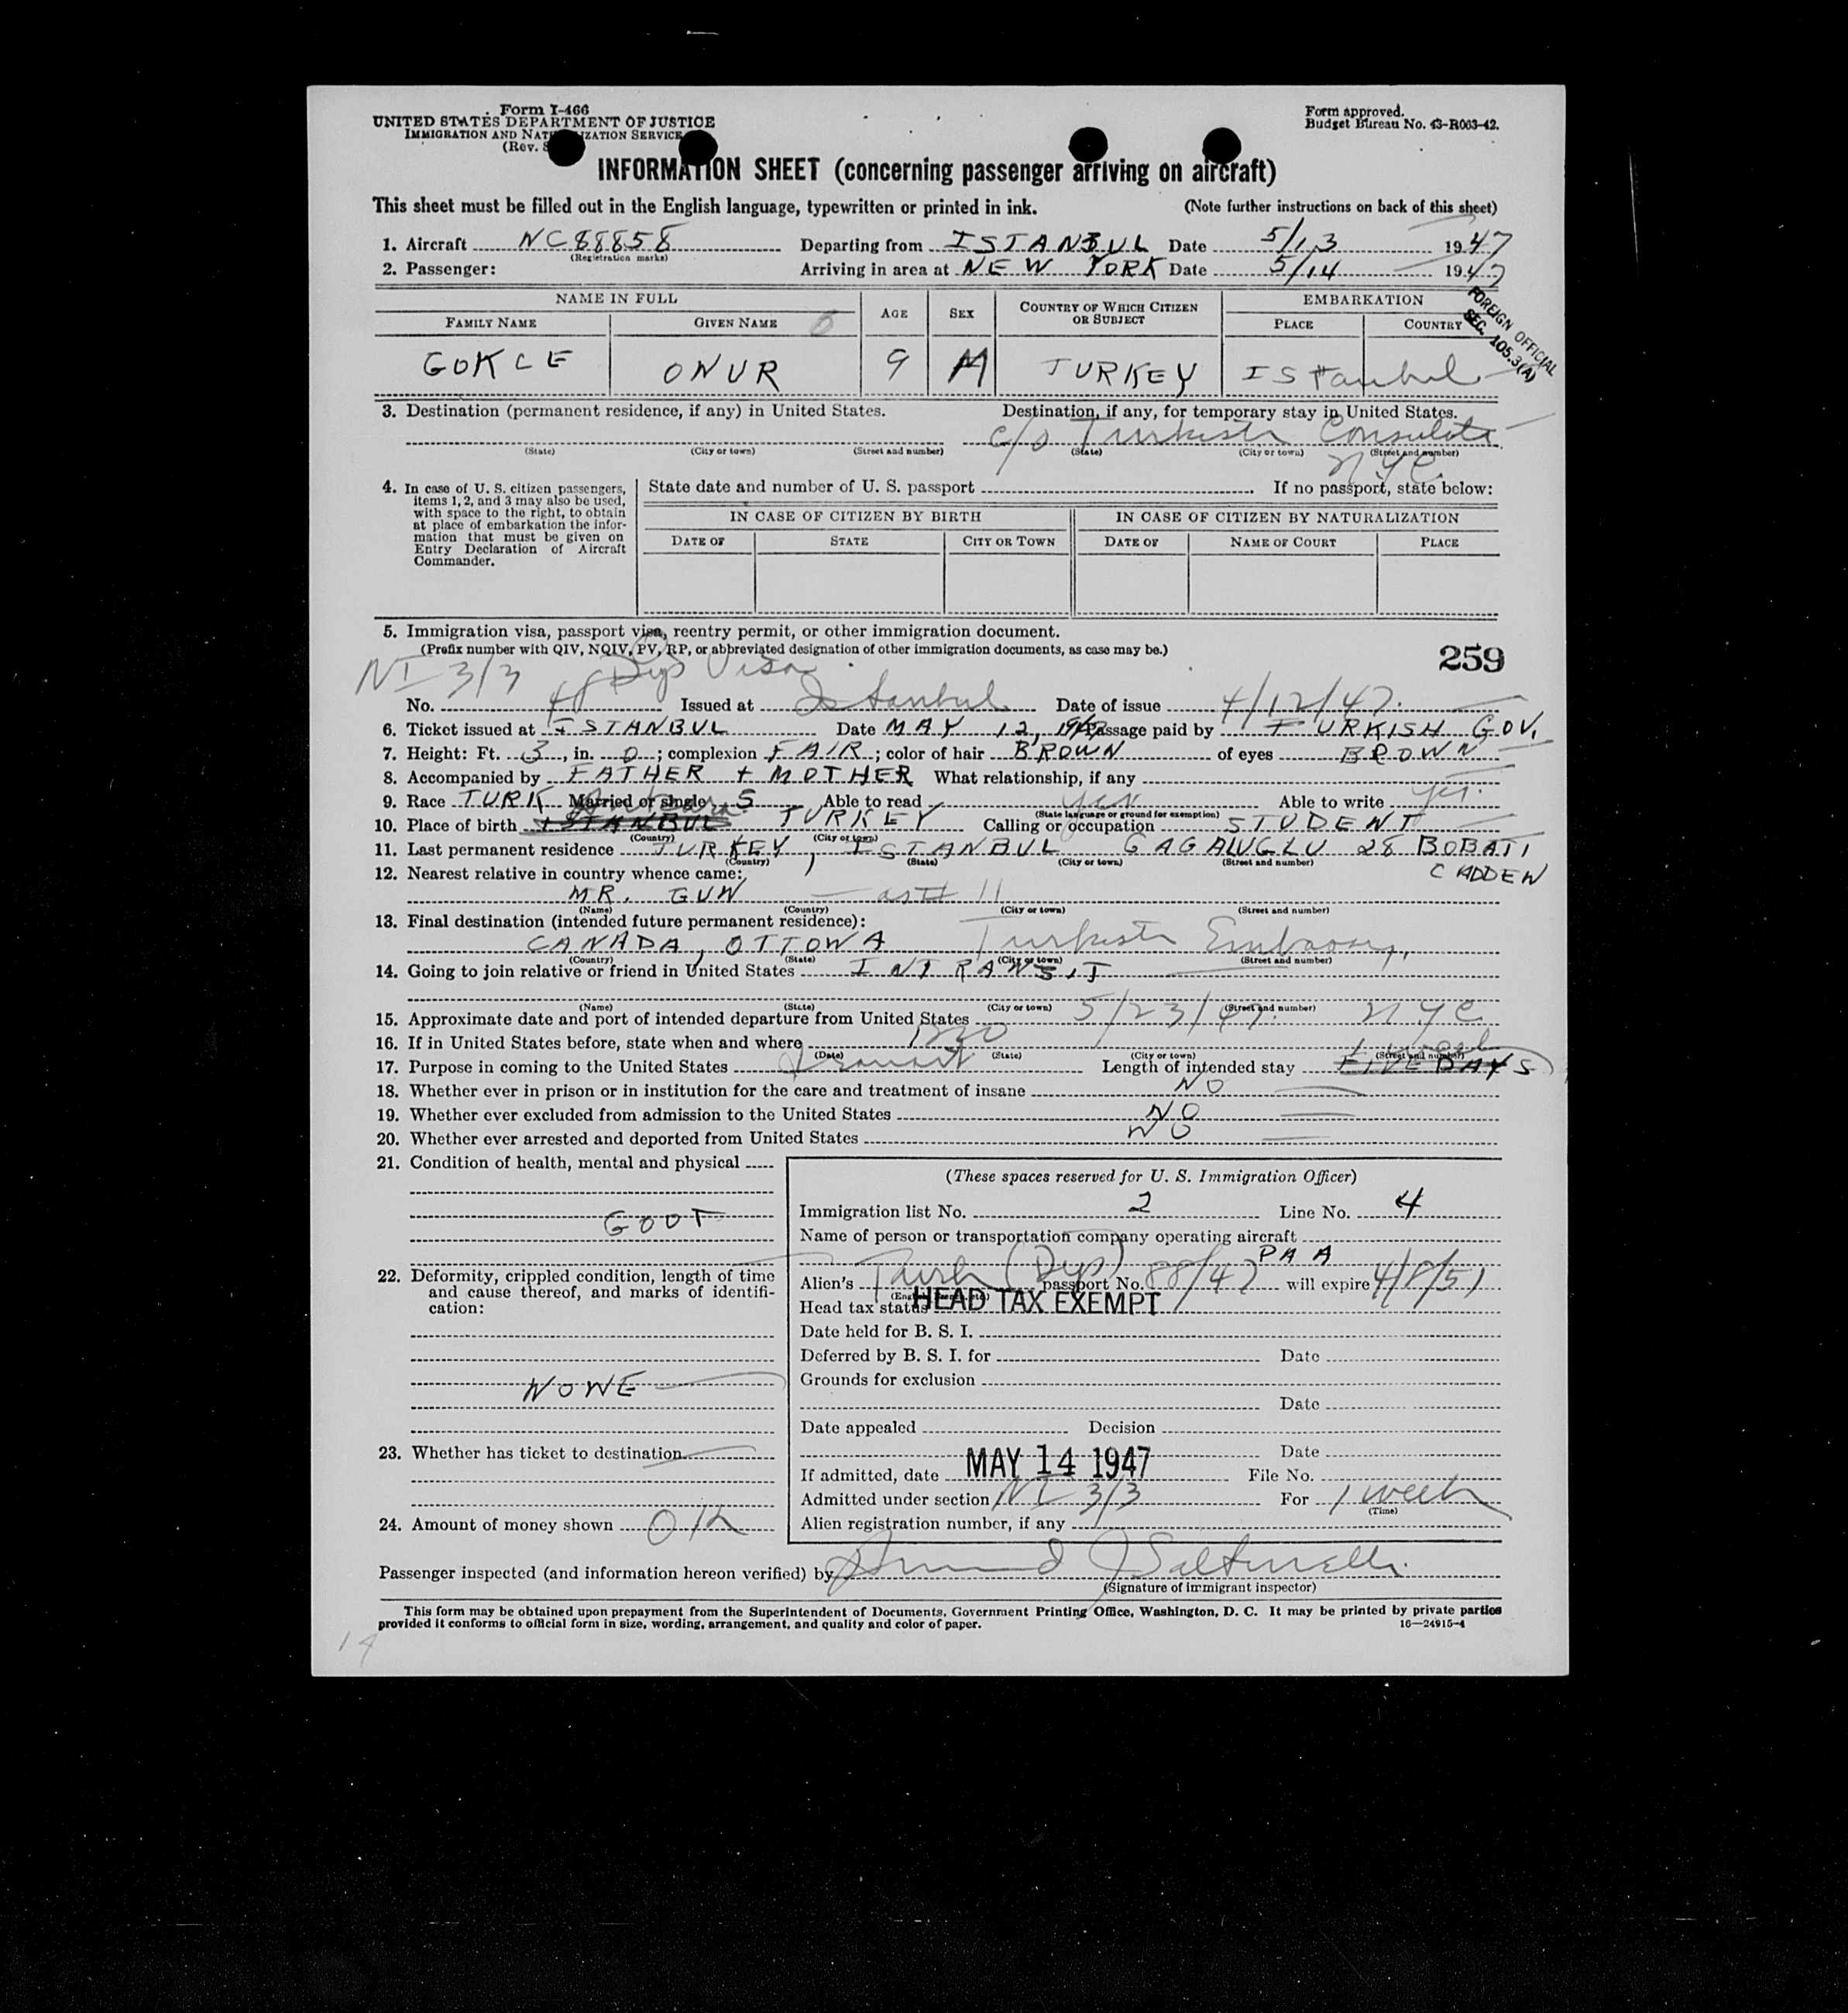 Form I-466
UNITED STATES DEPARTMENT OF JUSTICE
IMMIGRATION AND NATURALIZATION SERVICE
(Rev.
Form approved.
Budget Bureau No. 43-R063-42.
INFORMATION SHEET (concerning passenger arriving on aircraft)
This sheet must be filled out in the English language, typewritten or printed in ink. (Note further instructions on back of this sheet)
1. Aircraft NC88858 Departing from ISTANBUL Date 5/13 1947
(Registration marks)
2. Passenger: Arriving in area at NEW YORK Date 5/14 1947
FOREIGN OFFICIAL
SEC. 105.3(A)
NAME IN FULL AGE SEX COUNTRY OF WHICH CITIZEN OR SUBJECT EMBARKATION
FAMILY NAME GIVEN NAME PLACE COUNTRY
GOKCE ONUR 9 M TURKEY IStanbul
3. Destination (permanent residence, if any) in United States. Destination, if any, for temporary stay in United States.
c/o Turkish Consulate
(State) (City or town) (Street and number) (State) (City or town) (Street and number)
NYC.
4. In case of U. S. citizen passengers, items 1, 2, and 3 may also be used, with space to the right, to obtain at place of embarkation the information that must be given on Entry Declaration of Aircraft Commander.
State date and number of U. S. passport If no passport, state below:
IN CASE OF CITIZEN BY BIRTH IN CASE OF CITIZEN BY NATURALIZATION
DATE OF STATE CITY OR TOWN DATE OF NAME OF COURT PLACE
5. Immigration visa, passport visa, reentry permit, or other immigration document.
(Prefix number with QIV, NQIV, PV, RP, or abbreviated designation of other immigration documents, as case may be.)
259
NI 3/3 Dip Visa
No. 48 Issued at Istanbul Date of issue 4/12/47.
6. Ticket issued at ISTANBUL Date MAY 12, 1947 Passage paid by TURKISH GOV.
7. Height: Ft. 3, in. 0; complexion FAIR; color of hair BROWN of eyes BROWN
8. Accompanied by FATHER + MOTHER What relationship, if any
9. Race TURK Married or single S Able to read yes Able to write yes.
(State language or ground for exemption)
10. Place of birth ISTANBUL TURKEY Calling or occupation STUDENT
(Country) (City or town)
11. Last permanent residence TURKEY, ISTANBUL GAGALUGLU 28 BOBATI
(Country) (State) (City or town) (Street and number)
CADDEW
12. Nearest relative in country whence came:
MR. GUN as # 11
(Name) (Country) (City or town) (Street and number)
13. Final destination (intended future permanent residence):
CANADA, OTTOWA Turkish Embassy,
(Country) (State) (City or town) (Street and number)
14. Going to join relative or friend in United States INTRANSIT
(Name) (State) (City or town) (Street and number)
15. Approximate date and port of intended departure from United States 5/23/47. NYC
16. If in United States before, state when and where
(Date) (State) (City or town) (Street and number)
1 week
17. Purpose in coming to the United States Transit Length of intended stay FIVE DAYS
18. Whether ever in prison or in institution for the care and treatment of insane NO
19. Whether ever excluded from admission to the United States NO
20. Whether ever arrested and deported from United States NO
21. Condition of health, mental and physical
GOOT
22. Deformity, crippled condition, length of time and cause thereof, and marks of identification:
NONE
23. Whether has ticket to destination
24. Amount of money shown O/K
(These spaces reserved for U. S. Immigration Officer)
Immigration list No. 2 Line No. 4
Name of person or transportation company operating aircraft
PAA
Alien's Turish (Dip) passport No. 88/47 will expire 4/8/51
Head tax status HEAD TAX EXEMPT
Date held for B. S. I.
Deferred by B. S. I. for Date
Grounds for exclusion
Date
Date appealed Decision
Date
If admitted, date MAY 14 1947 File No.
Admitted under section NI 3/3 For 1 week
(Time)
Alien registration number, if any
Passenger inspected (and information hereon verified) by
(Signature of immigrant inspector)
This form may be obtained upon prepayment from the Superintendent of Documents, Government Printing Office, Washington, D. C. It may be printed by private parties
provided it conforms to official form in size, wording, arrangement, and quality and color of paper. 16—24915-4
14